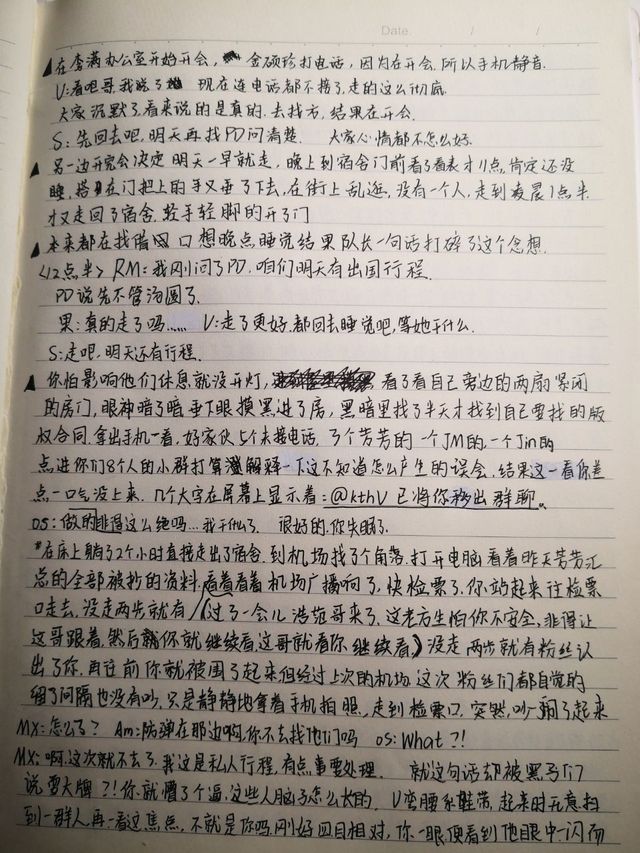 Date. / /
▲在李满办公室开始开会, 金硕珍打电话, 因为在开会.所以手机静音.
V:看吧哥.我说了 现在连电话都不接了.走的这么彻底.
大家沉默了.看来说的是真的.去找方,结果在开会.
S:先回去吧,明天再找PD问清楚. 大家心情都不怎么好.
▲另一边开完会决定明天一早就走, 晚上到宿舍门前看了看表才11点,肯定还没
睡,搭在门把上的手又垂了下去.在街上乱逛,没有一个人,走到凌晨1点半
才又走回了宿舍.轻手轻脚的开了门
▲本来都在找借口想晚点睡觉结果队长一句话打碎了这个念想.
<12点半> RM:我刚问了PD.咱们明天有出国行程.
PD说先不管汤圆了.
果:真的走了吗...... V:走了更好.都回去睡觉吧,等她干什么.
S:走吧,明天还有行程.
▲你怕影响他们休息就没开灯, 看了看自己旁边的两扇紧闭
的房门,眼神暗了暗垂下眼摸黑进了房,黑暗里找了半天才找到自己要找的版
权合同.拿出手机一看,好家伙5个未接电话,3个芳芳的一个JM的,一个Jin的
点进你们8个人的小群打算解释一下这不知道怎么产生的误会,结果这一看你差
点一口气没上来.几个大字在屏幕上显示着:@kthV 已将你移出群聊..
os:做的非得这么绝吗...我干什么了. 很好的,你失眠了.
*在床上躺了2个小时直接走出了宿舍.到机场找了个角落,打开电脑看着昨天芳芳汇
总的全部被抄的资料,看着看着机场广播响了,快检票了.你站起来往检票
口走去,没走两步就有(过了一会儿浩范哥来了,这老方生怕你不安全,非得让
这哥跟着.然后你就继续看.这哥就看你继续看)没走两步就有粉丝认
出了你.再往前你就被围了起来但经过上次的机场.这次粉丝们都自觉的
留了间隔也没有吵,只是静静地拿着手机拍照,走到检票口,突然,吵闹了起来
MX:怎么了? Am:防弹在那边啊,你不去找他们吗 os:What?!
MX:啊.这次就不去了.我这是私人行程,有点事要处理. 就这句话却被黑子们
说耍大牌?!你就懵了个逼,这些人脑子怎么长的, V弯腰系鞋带,起来时无意扫
到一群人,再一看这焦点,不就是你吗.刚好四目相对,你一眼便看到他眼中一闪而